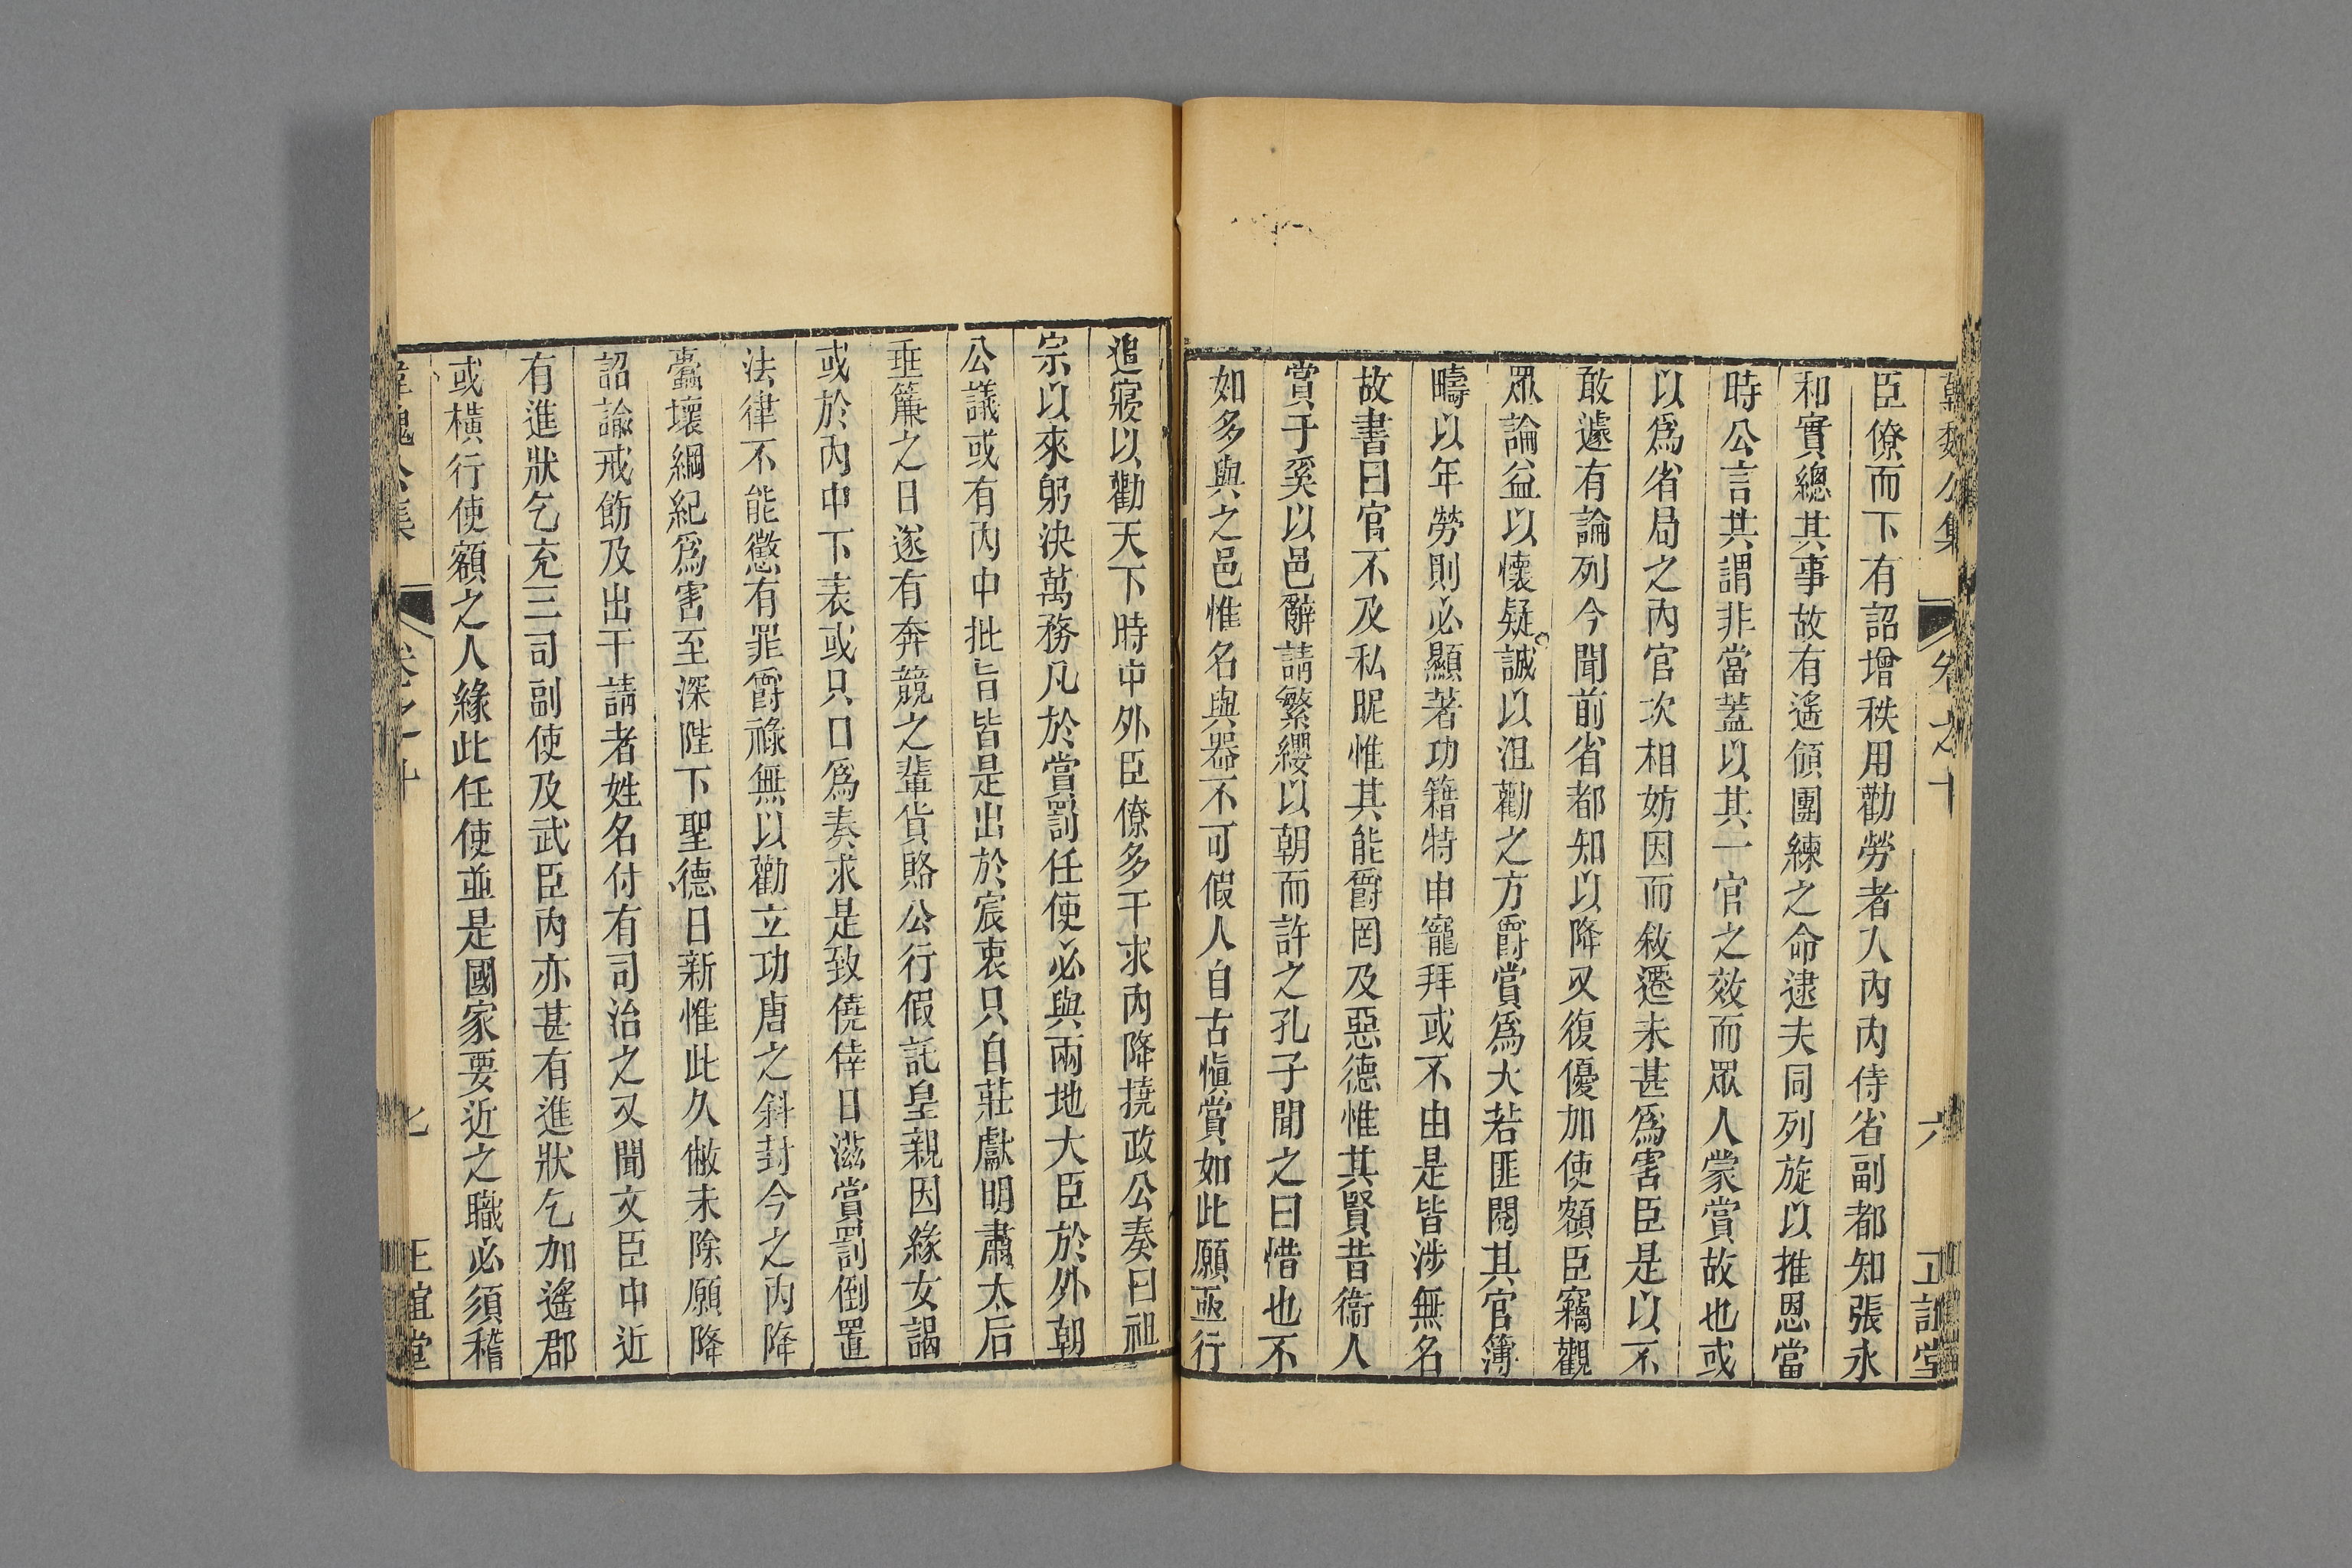 臣僚而下有詔增秩用勸勞者入內內侍省副都知張永
和實總其事故有遙領團練之命逮夫同列旋以推恩當
時公言共謂非當蓋以其一官之效而眾人蒙賞故也或
以為省局之內官次相妨因而敘遷未甚為害臣是以不
敢遽有論列今聞前省都知以降又復優加使額臣竊觀
眾論益以懷疑誠以沮勸之方爵賞為大若匪閱其官簿
疇以年勞則必顯著功籍特申寵拜或不由是皆涉無名
故書曰官不及私昵惟其能爵罔及惡德惟其賢昔衞人
賞于奚以邑辭請繁纓以朝而許之孔子聞之曰惜也不
如多與之邑惟名與器不可假人自古慎賞如此願亟行
追寢以勸天下時中外臣僚多干求內降撓政公奏曰祖
宗以來躬決萬務凡於賞罰任使必與兩地大臣於外朝
公議或有內中批旨皆是出於宸衷只自莊獻明肅太后
垂簾之日遂有奔競之輩貨賂公行假託皇親因緣女謁
或於內中下表或只口為奏求是致僥倖日滋賞罰倒置
法律不能懲有罪爵祿無以勸立功唐之斜封今之內降
蠹壞綱紀為害至深陛下聖德日新惟此久敝未除願降
詔諭戒飭及出干請者姓名付有司治之又聞文臣中近
有進狀乞充三司副使及武臣內亦甚有進狀乞加遙郡
或橫行使額之人緣此任使並是國家要近之職必須稽